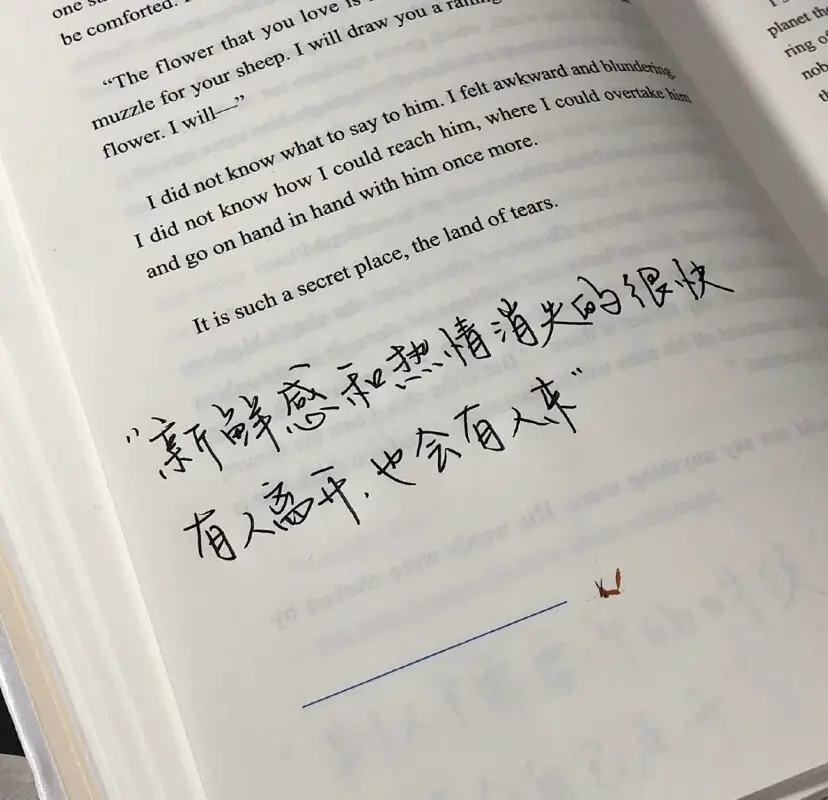 one
be comforted.
“The flower that you love is
muzzle for your sheep. I will draw you a
flower. I will—”
I did not know what to say to him. I felt awkward and blundering.
I did not know how I could reach him, where I could overtake him
and go on hand in hand with him once more.
It is such a secret place, the land of tears.
“新鲜感和热情消失的很快
有人离开,也会有人来”
planet
ring of